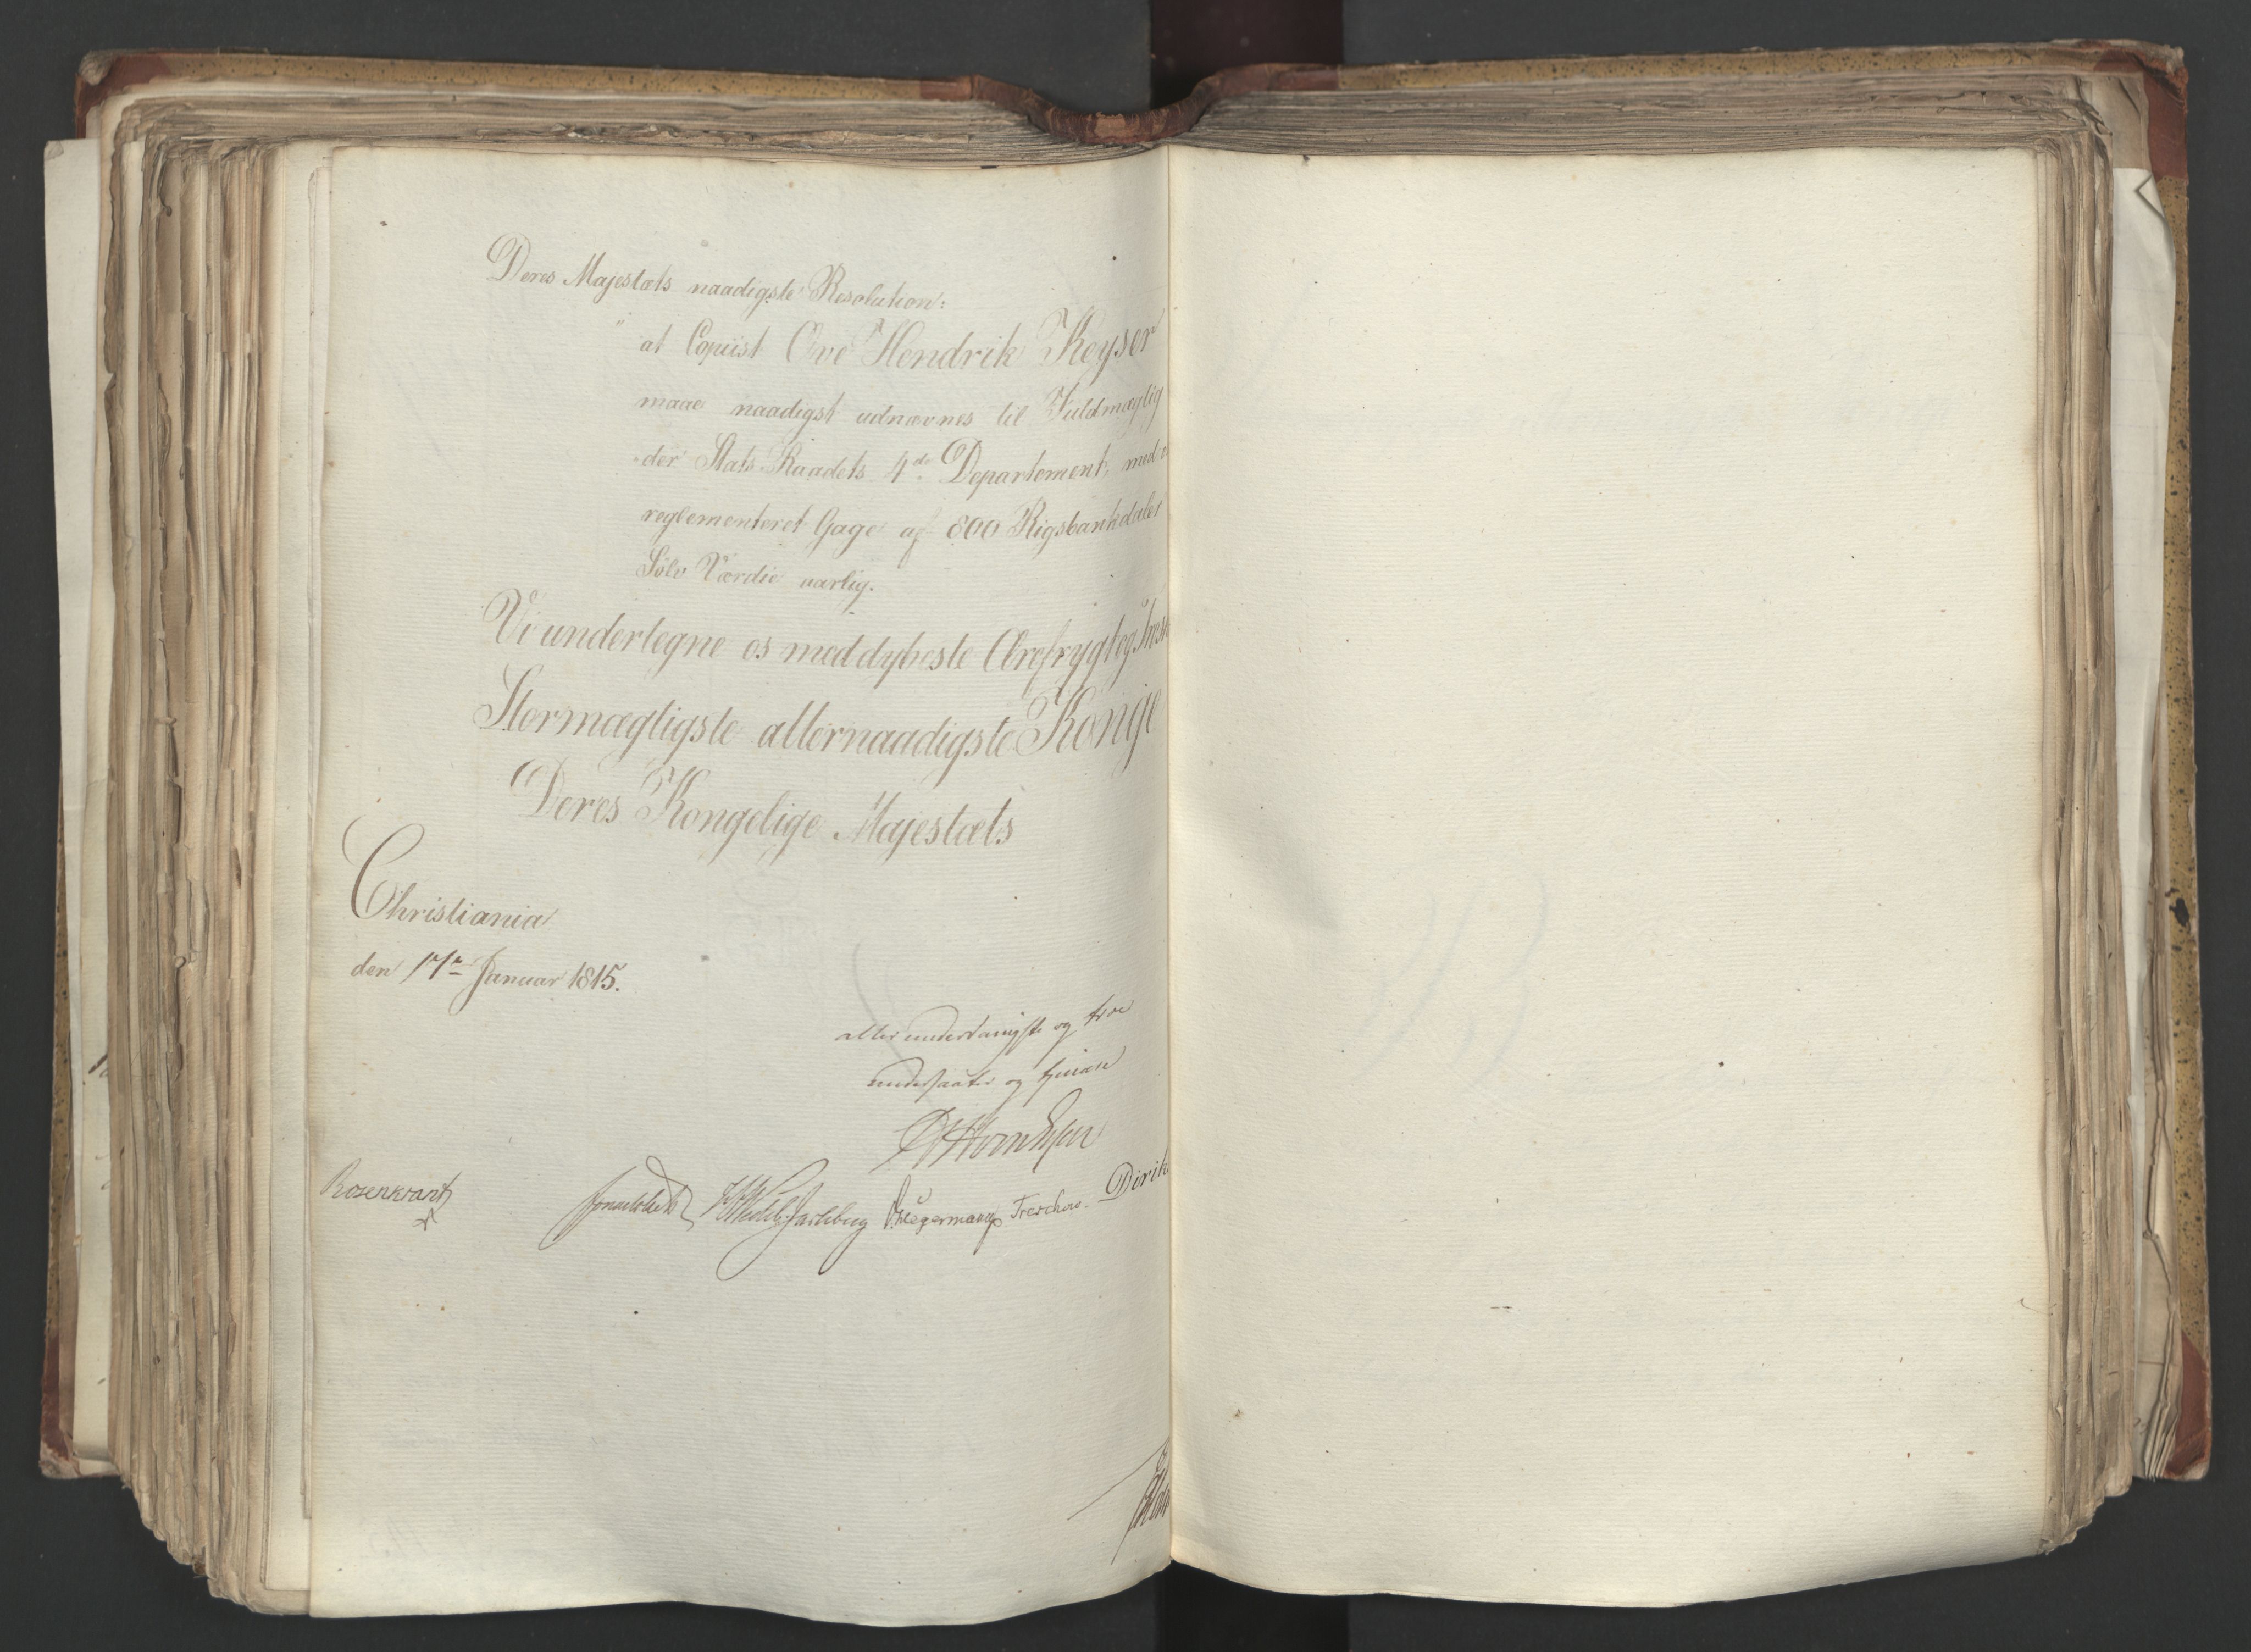 Deres Majestæts naadigste Resolution:
"at Copiist Ove Hendrik Keyser
maae naadigst udnævnes til Fuldmægtig
der Stats Raadets 4de Departement, med
reglementeret Gage af 800 Rigsbankdaler
Sølv Værdie aarlig.
Vi undertegne os med dybeste Ærefrygt og
Stormægtigste allernaadigste Konge
Deres Kongelige Majestæts
Christiania
den 17de Januar 1815.
allerunderdanigste og troe
undersaatter og tjenere
Rosenkrantz
Sommerhielm
Wedel Jarlsberg
Hegermann
Treschow.
Dirik